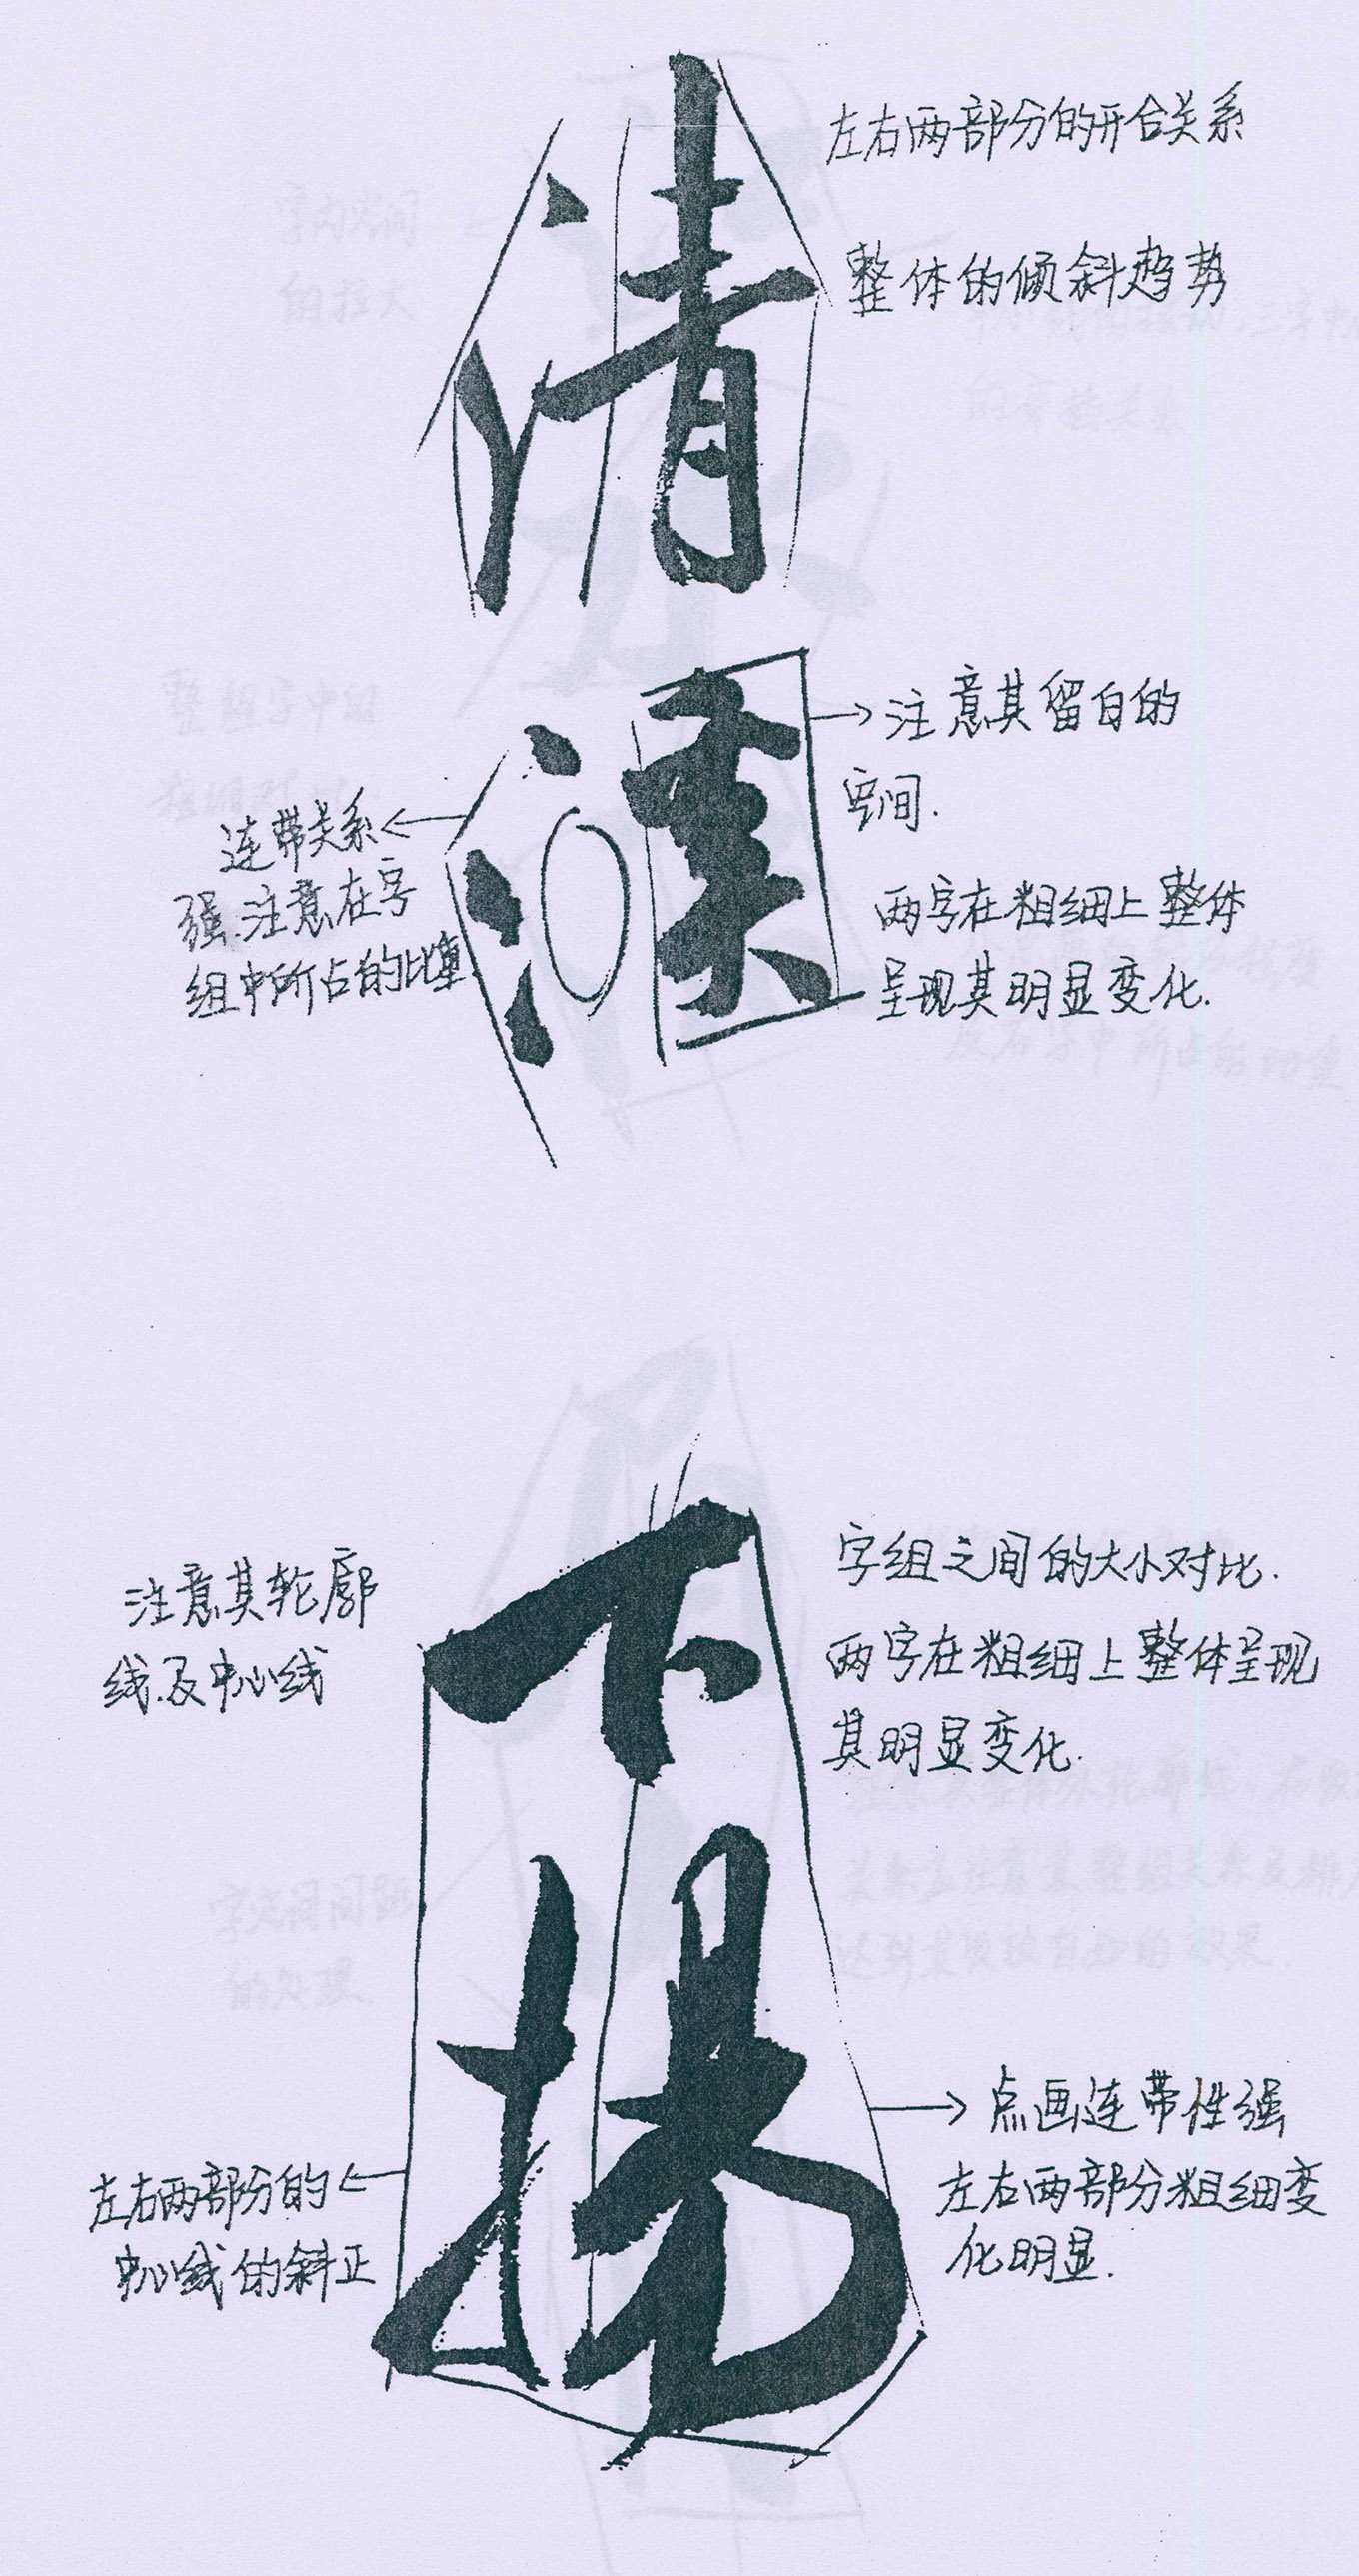 清
左右两部分的开合关系
整体的倾斜趋势
注意其留白的
空间.
连带关系
强.注意在字
组中所占的比重
两字在粗细上整体
呈现其明显变化.
下
注意其轮廓
线及中心线
字组之间的大小对比.
两字在粗细上整体呈现
其明显变化.
点画连带性强
左右两部分粗细变
化明显.
左右两部分的
中心线的斜正